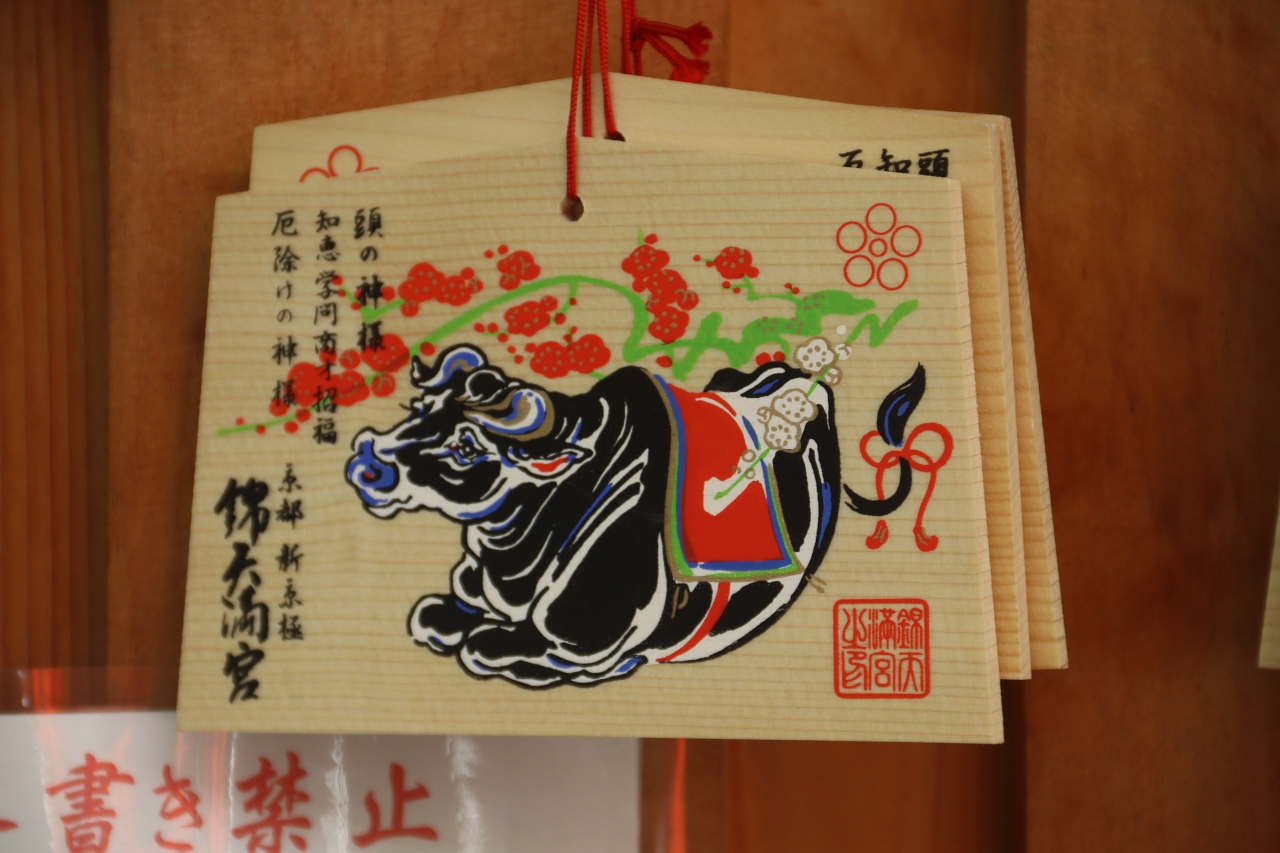 頭の神様
知恵学問商才招福
厄除けの神様
京都新京極
錦天満宮
頭
知
錦天
満宮
之印
書き禁止